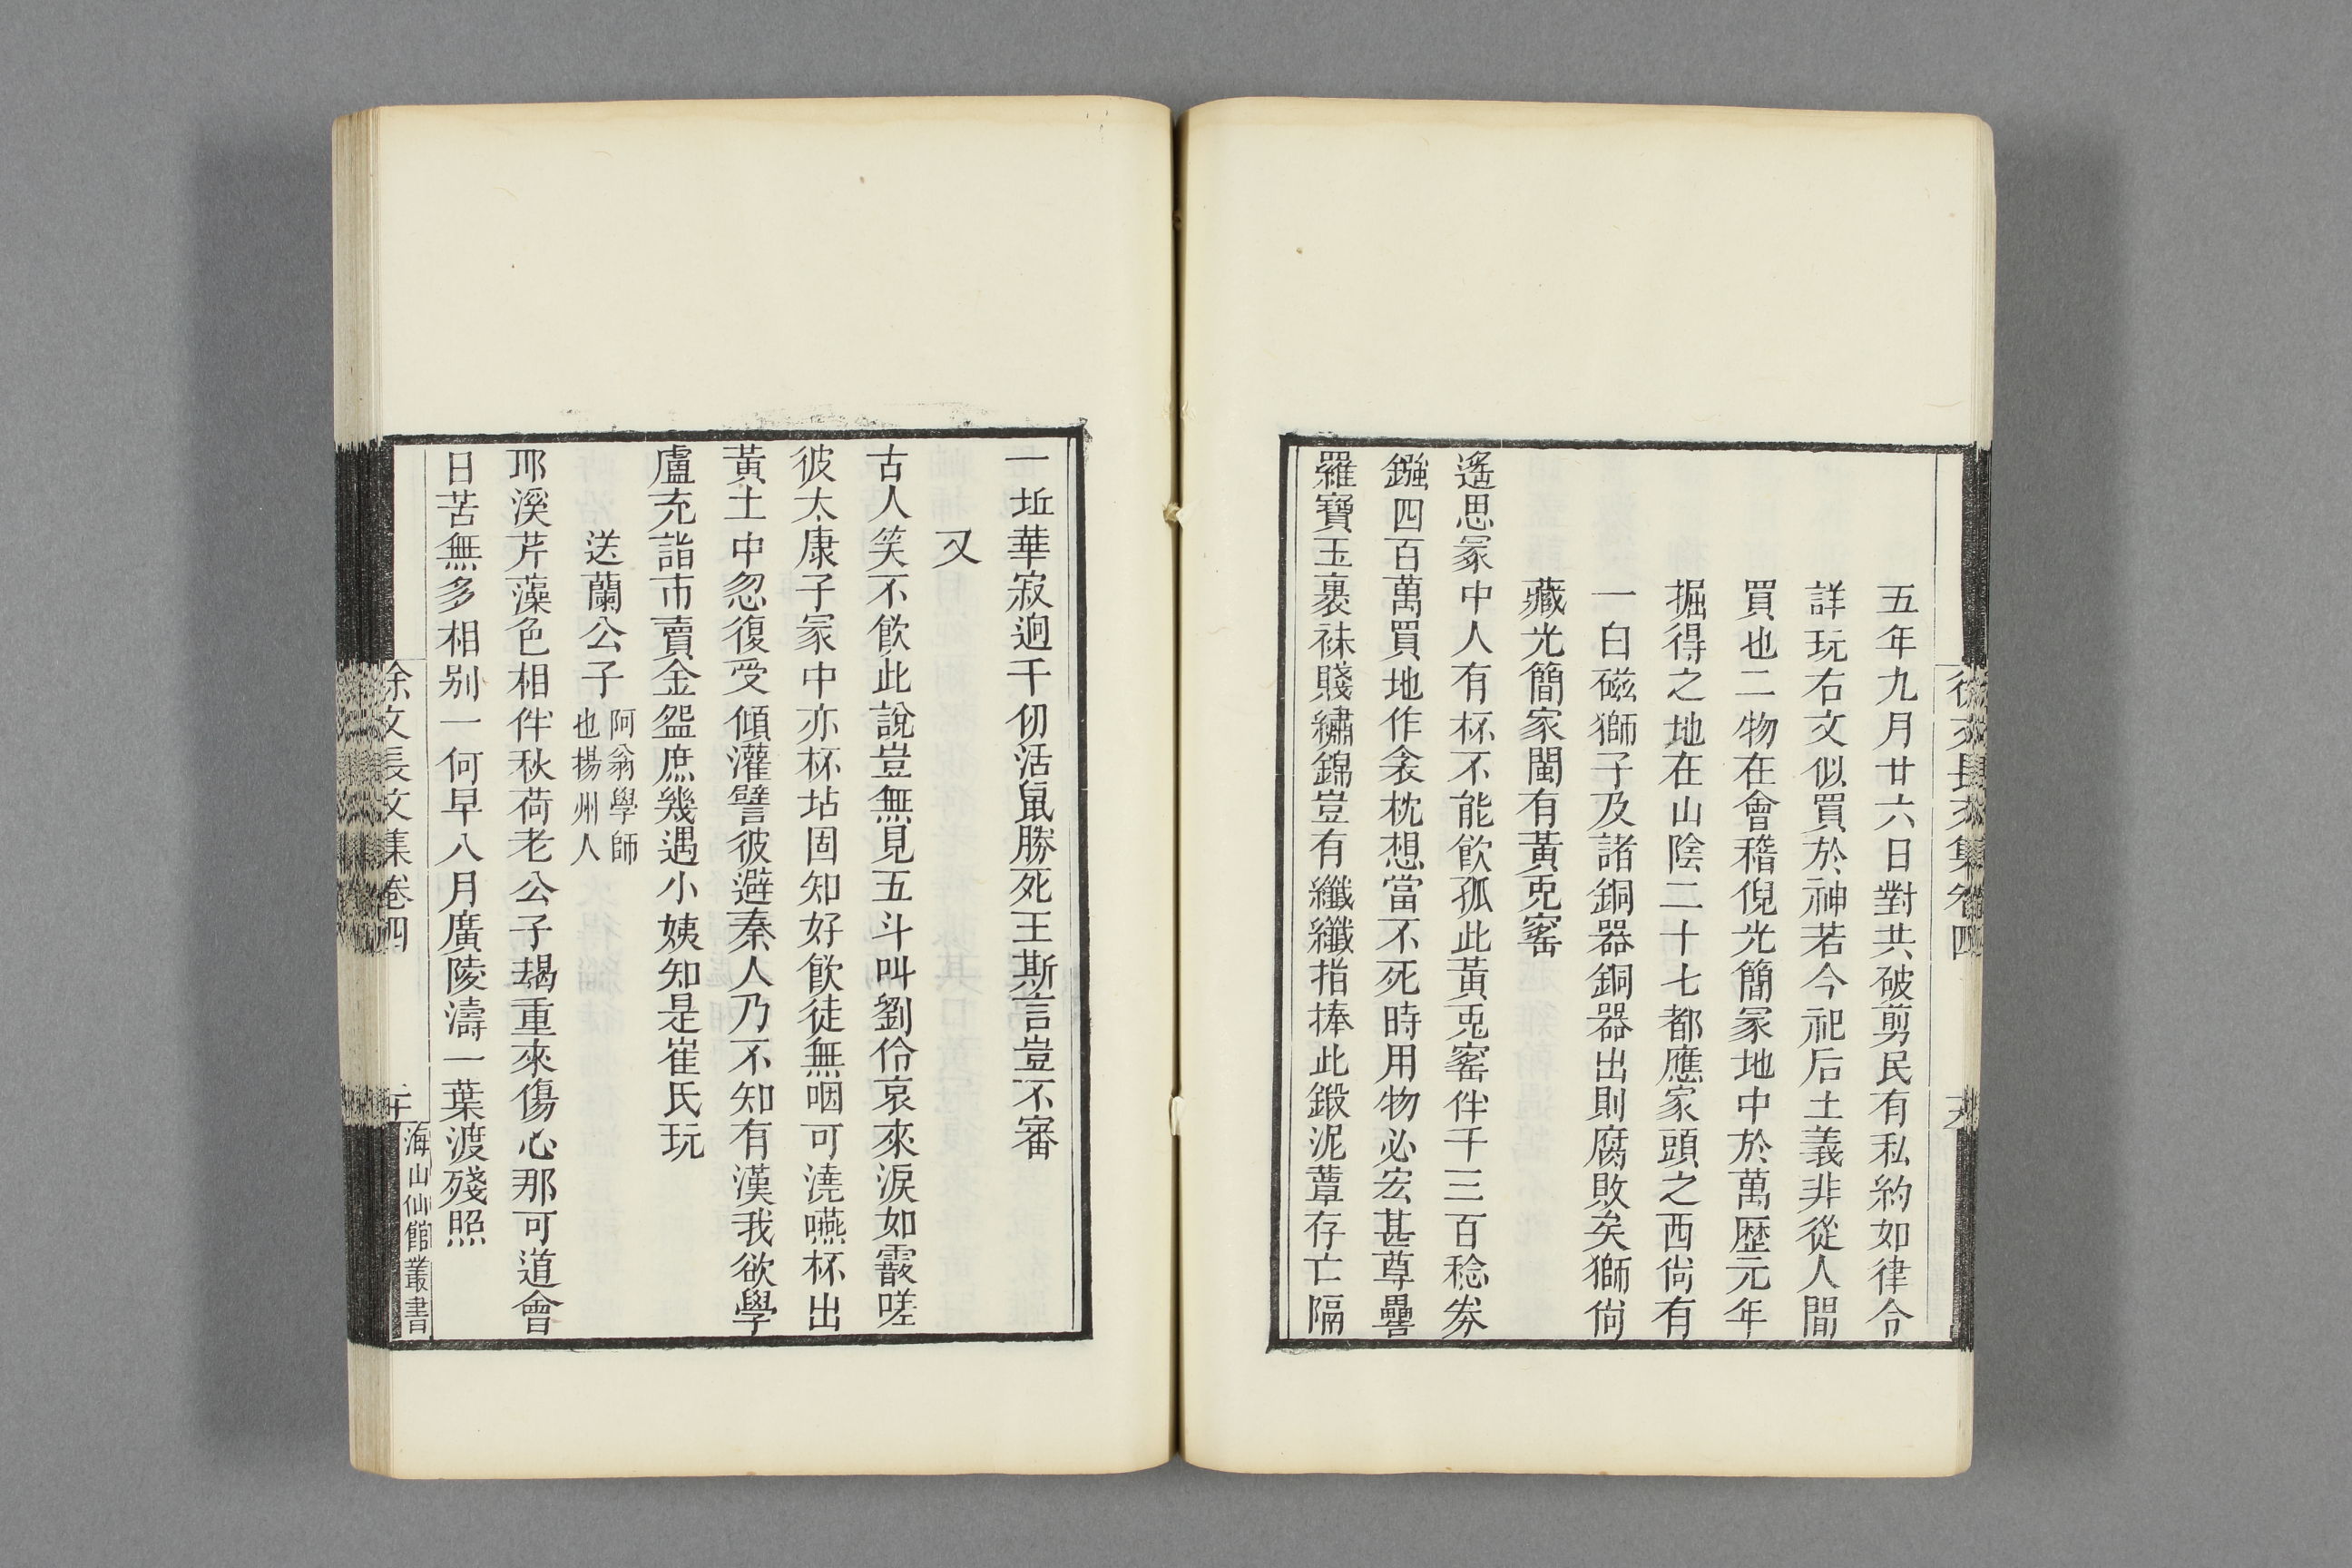 徐文長文集卷四
五年九月廿六日對共破剪民有私約如律令
詳玩右文似買於神若今祀后土義非從人間
買也二物在會稽倪光簡冢地中於萬歷元年
掘得之地在山陰二十七都應家頭之西尙有
一白磁獅子及諸銅器銅器出則腐敗矣獅尙
藏光簡家閩有黃兎窰
遙思冢中人有杯不能飲孤此黃兎窰伴千三百稔劵
鏹四百萬買地作衾枕想當不死時用物必宏甚尊罍
羅寶玉裹袜賤繡錦豈有纖纖指捧此鍛泥蕈存亡隔
一坵華寂逈千仞活鼠勝死王斯言豈不審
又
古人笑不飲此說豈無見五斗叫劉伶哀來淚如霰嗟
彼太康子冢中亦杯坫固知好飲徒無咽可澆嚥杯出
黃土中忽復受傾灌譬彼避秦人乃不知有漢我欲學
盧充詣市賣金盌庶幾遇小姨知是崔氏玩
送蘭公子阿翁學師也揚州人
邢溪芹藻色相伴秋荷老公子朅重來傷心那可道會
日苦無多相别一何早八月廣陵濤一葉渡殘照
徐文長文集卷四
海山仙館叢書